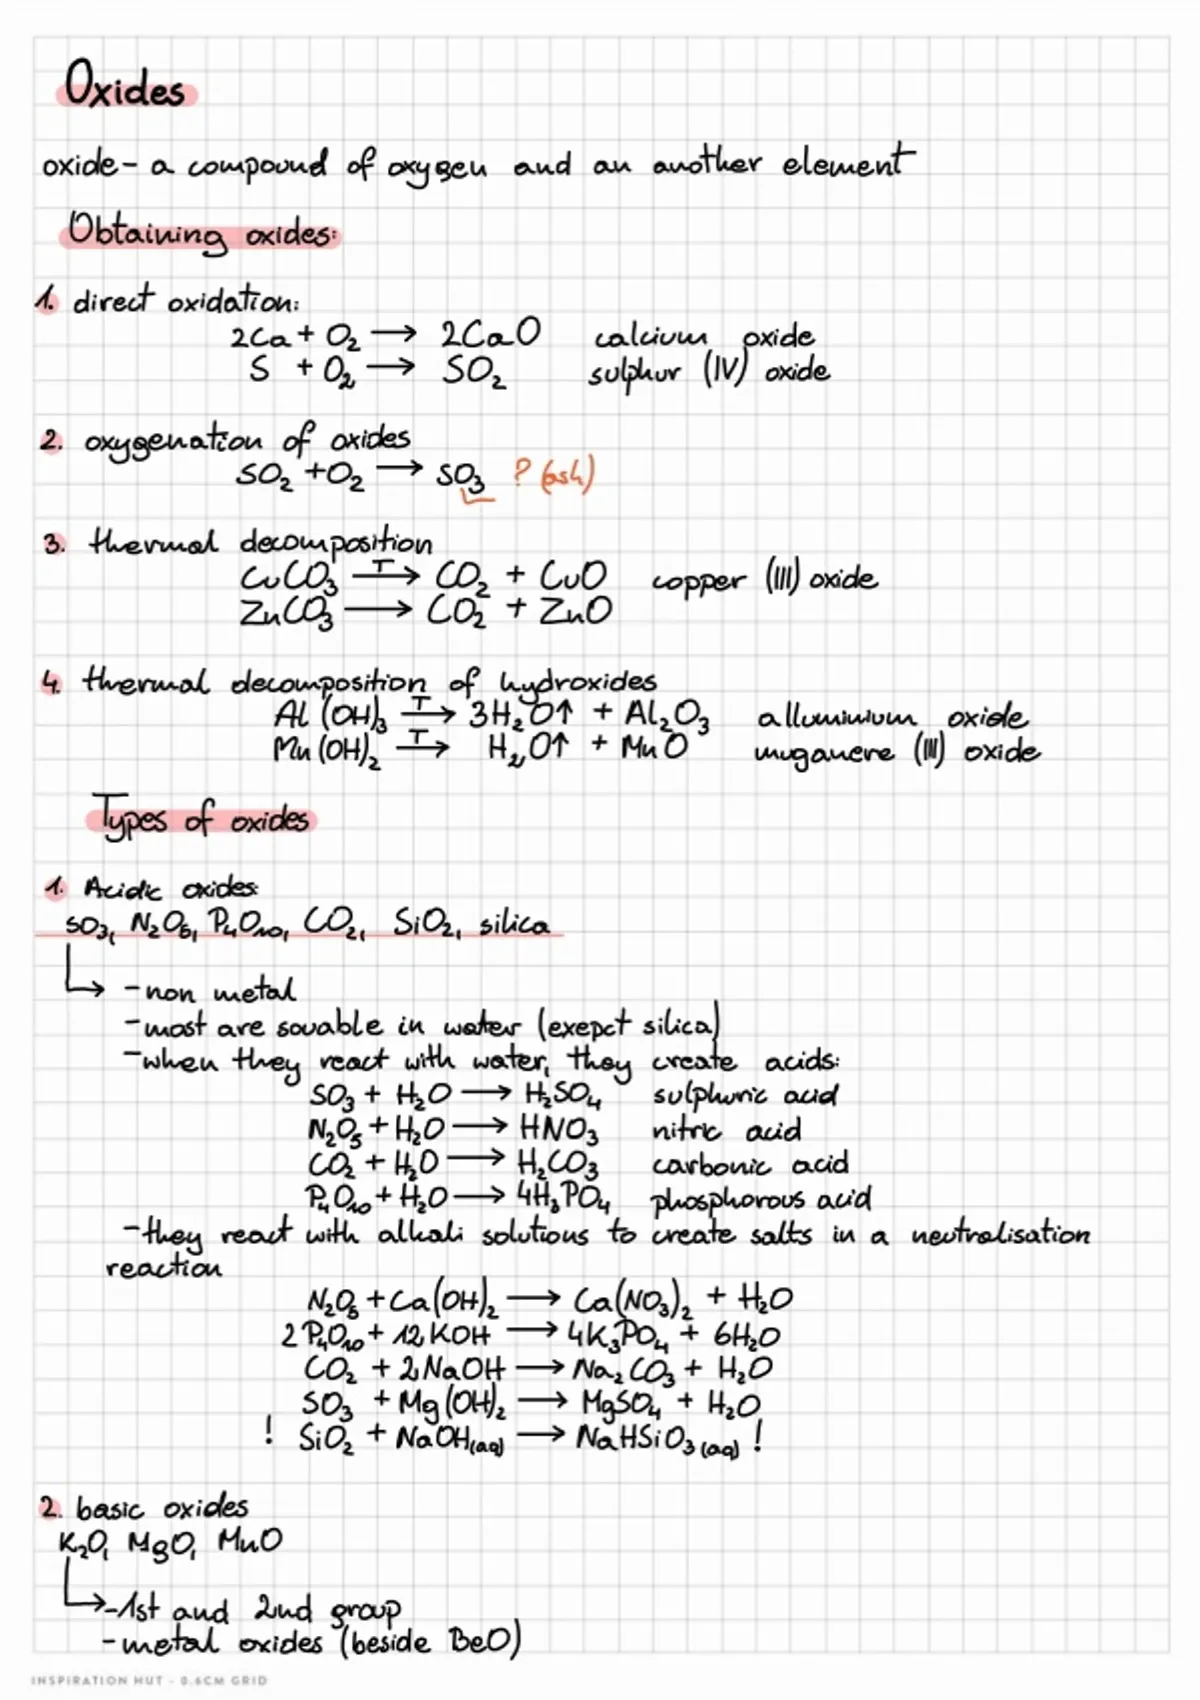 Oxides
oxide - a compound of oxygen and an another element
Obtaining oxides:
1. direct oxidation:
2Ca + O₂ → 2CaO calcium oxide
S + O₂ → SO₂ sulphur (IV) oxide
2. oxygenation of oxides
SO₂ + O₂ → SO₃ ? (ash)
3. thermal decomposition
CuCO₃ –T→ CO₂ + CuO copper (III) oxide
ZnCO₃ → CO₂ + ZnO
4. thermal decomposition of hydroxides
Al(OH)₃ –T→ 3H₂O↑ + Al₂O₃ alluminium oxide
Mn(OH)₂ –T→ H₂O↑ + MnO muganere (III) oxide
Types of oxides
1. Acidic oxides:
SO₃, N₂O₅, P₄O₁₀, CO₂, SiO₂, silica
→ - non metal
- most are souable in water (exepct silica)
- when they react with water, they create acids:
SO₃ + H₂O → H₂SO₄ sulphuric acid
N₂O₅ + H₂O → HNO₃ nitric acid
CO₂ + H₂O → H₂CO₃ carbonic acid
P₄O₁₀ + H₂O → 4H₃PO₄ phosphorous acid
- they react with alkali solutions to create salts in a neutralisation
reaction
N₂O₅ + Ca(OH)₂ → Ca(NO₃)₂ + H₂O
2P₄O₁₀ + 12KOH → 4K₃PO₄ + 6H₂O
CO₂ + 2NaOH → Na₂CO₃ + H₂O
SO₃ + Mg(OH)₂ → MgSO₄ + H₂O
! SiO₂ + NaOH(aq) → NaHSiO₃(aq) !
2. basic oxides
K₂O, MgO, MnO
→ - 1st and 2nd group
- metal oxides (beside BeO)
INSPIRATION HUT - 0.6CM GRID